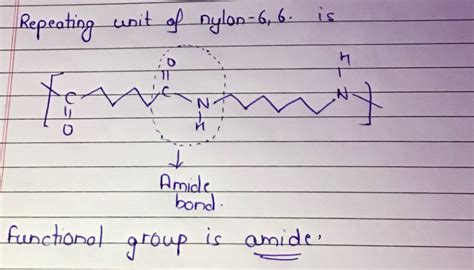 Repeating unit of nylon-6,6. is
O
H
C
C
N
N
O
H
Amide
bond.
Functional group is amide.